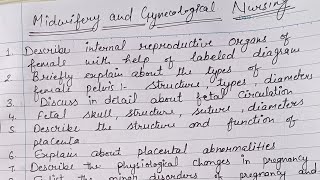 Midwifery and Gynecological Nursing
1. Describe internal reproductive Organs of
female with help of labeled diagram
2 Briefly explain about the types of
female pelvis:- structure, types, diameters
3. Discuss in detail about fetal Circulation
4. Fetal skull, structure, suture, diameters
5 Describe the structure and function of
placenta
6. Explain about placental abnormalities
7. Describe the physiological changes in pregnancy
the minor disorders of pregnancy and